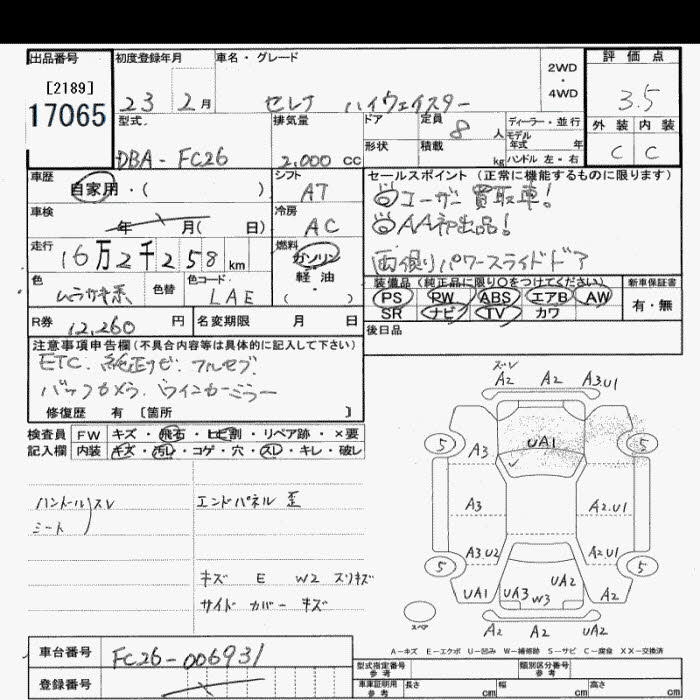 出品番号 初度登録年月 車名・グレード 評価点
[2189]
17065
23 2月 セレナ ハイウェイスター 2WD・4WD 3.5
型式 排気量 ドア 定員 8人 ディーラー・並行 外装 内装
モデル年式 年
DBA-FC26 2.000 cc 形状 積載 kg ハンドル 左・右 C C
車歴 シフト セールスポイント (正常に機能するものに限ります)
自家用・( ) A7 ◎ユーザー買取車!
車検 冷房 ◎AA初出品!
年 月( 日) AC
走行 燃料 両側パワースライドドア
16万2千258km ガソリン
軽油
( )
色 色替 色コード 装備品 (純正品に限り○をつけてください) 新車保証書
ムラサキ系 LAE PS RW ABS エアB AW 有・無
SR ナビ TV カワ
R券 12,260円 名変期限 月 日 後日品
注意事項申告欄(不具合内容等は具体的に記入して下さい)
ETC. 純正ナビ. フルセグ.
バックカメラ. ウインカーミラー
修復歴 有 [箇所 ]
検査員 FW キズ・飛石・ヒビ割・リペア跡・×要
記入欄 内装 キズ・汚レ・コゲ・穴・スレ・キレ・破レ
ハンドル スレ
シート
エンドパネル 歪
キズ E W2 スリキズ
サイド カバー キズ
ズレ
A2 A2 A3.U1
5 5
A3 UA1
A3 A2.U1
A3.U2 A2.U1
5 5
UA1 UA3 W3 UA2 A2
スペア
A2 A2 UA2
A-キズ E-エクボ U-凹み W-補修跡 S-サビ C-腐食 XX-交換済
車台番号 FC26-006931
登録番号
型式指定番号 参考 類別区分番号 参考
車庫証明用 参考 長さ cm 幅 cm 高さ cm